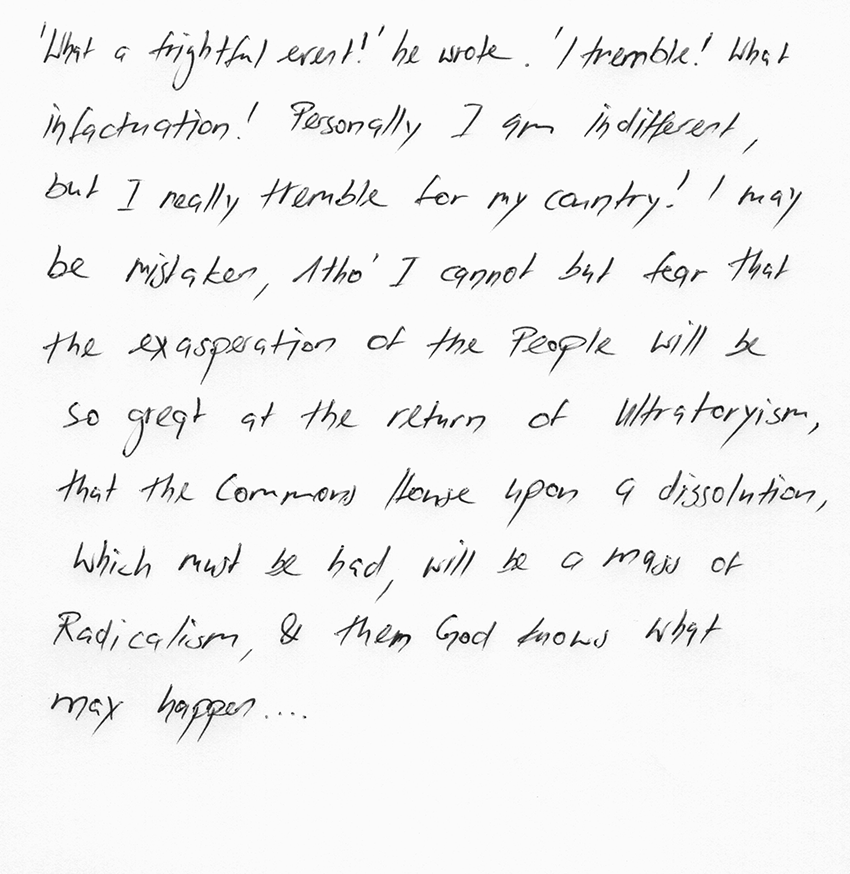 'What a frightful event!' he wrote. 'I tremble! What
infactuation! Personally I am indifferent,
but I really tremble for my country! I may
be mistaken, Atho' I cannot but fear that
the exasperation of the People will be
so great at the return of Ultratoryism,
that the Commons House upon a dissolution,
which must be had, will be a mass of
Radicalism, & then God knows what
may happen....